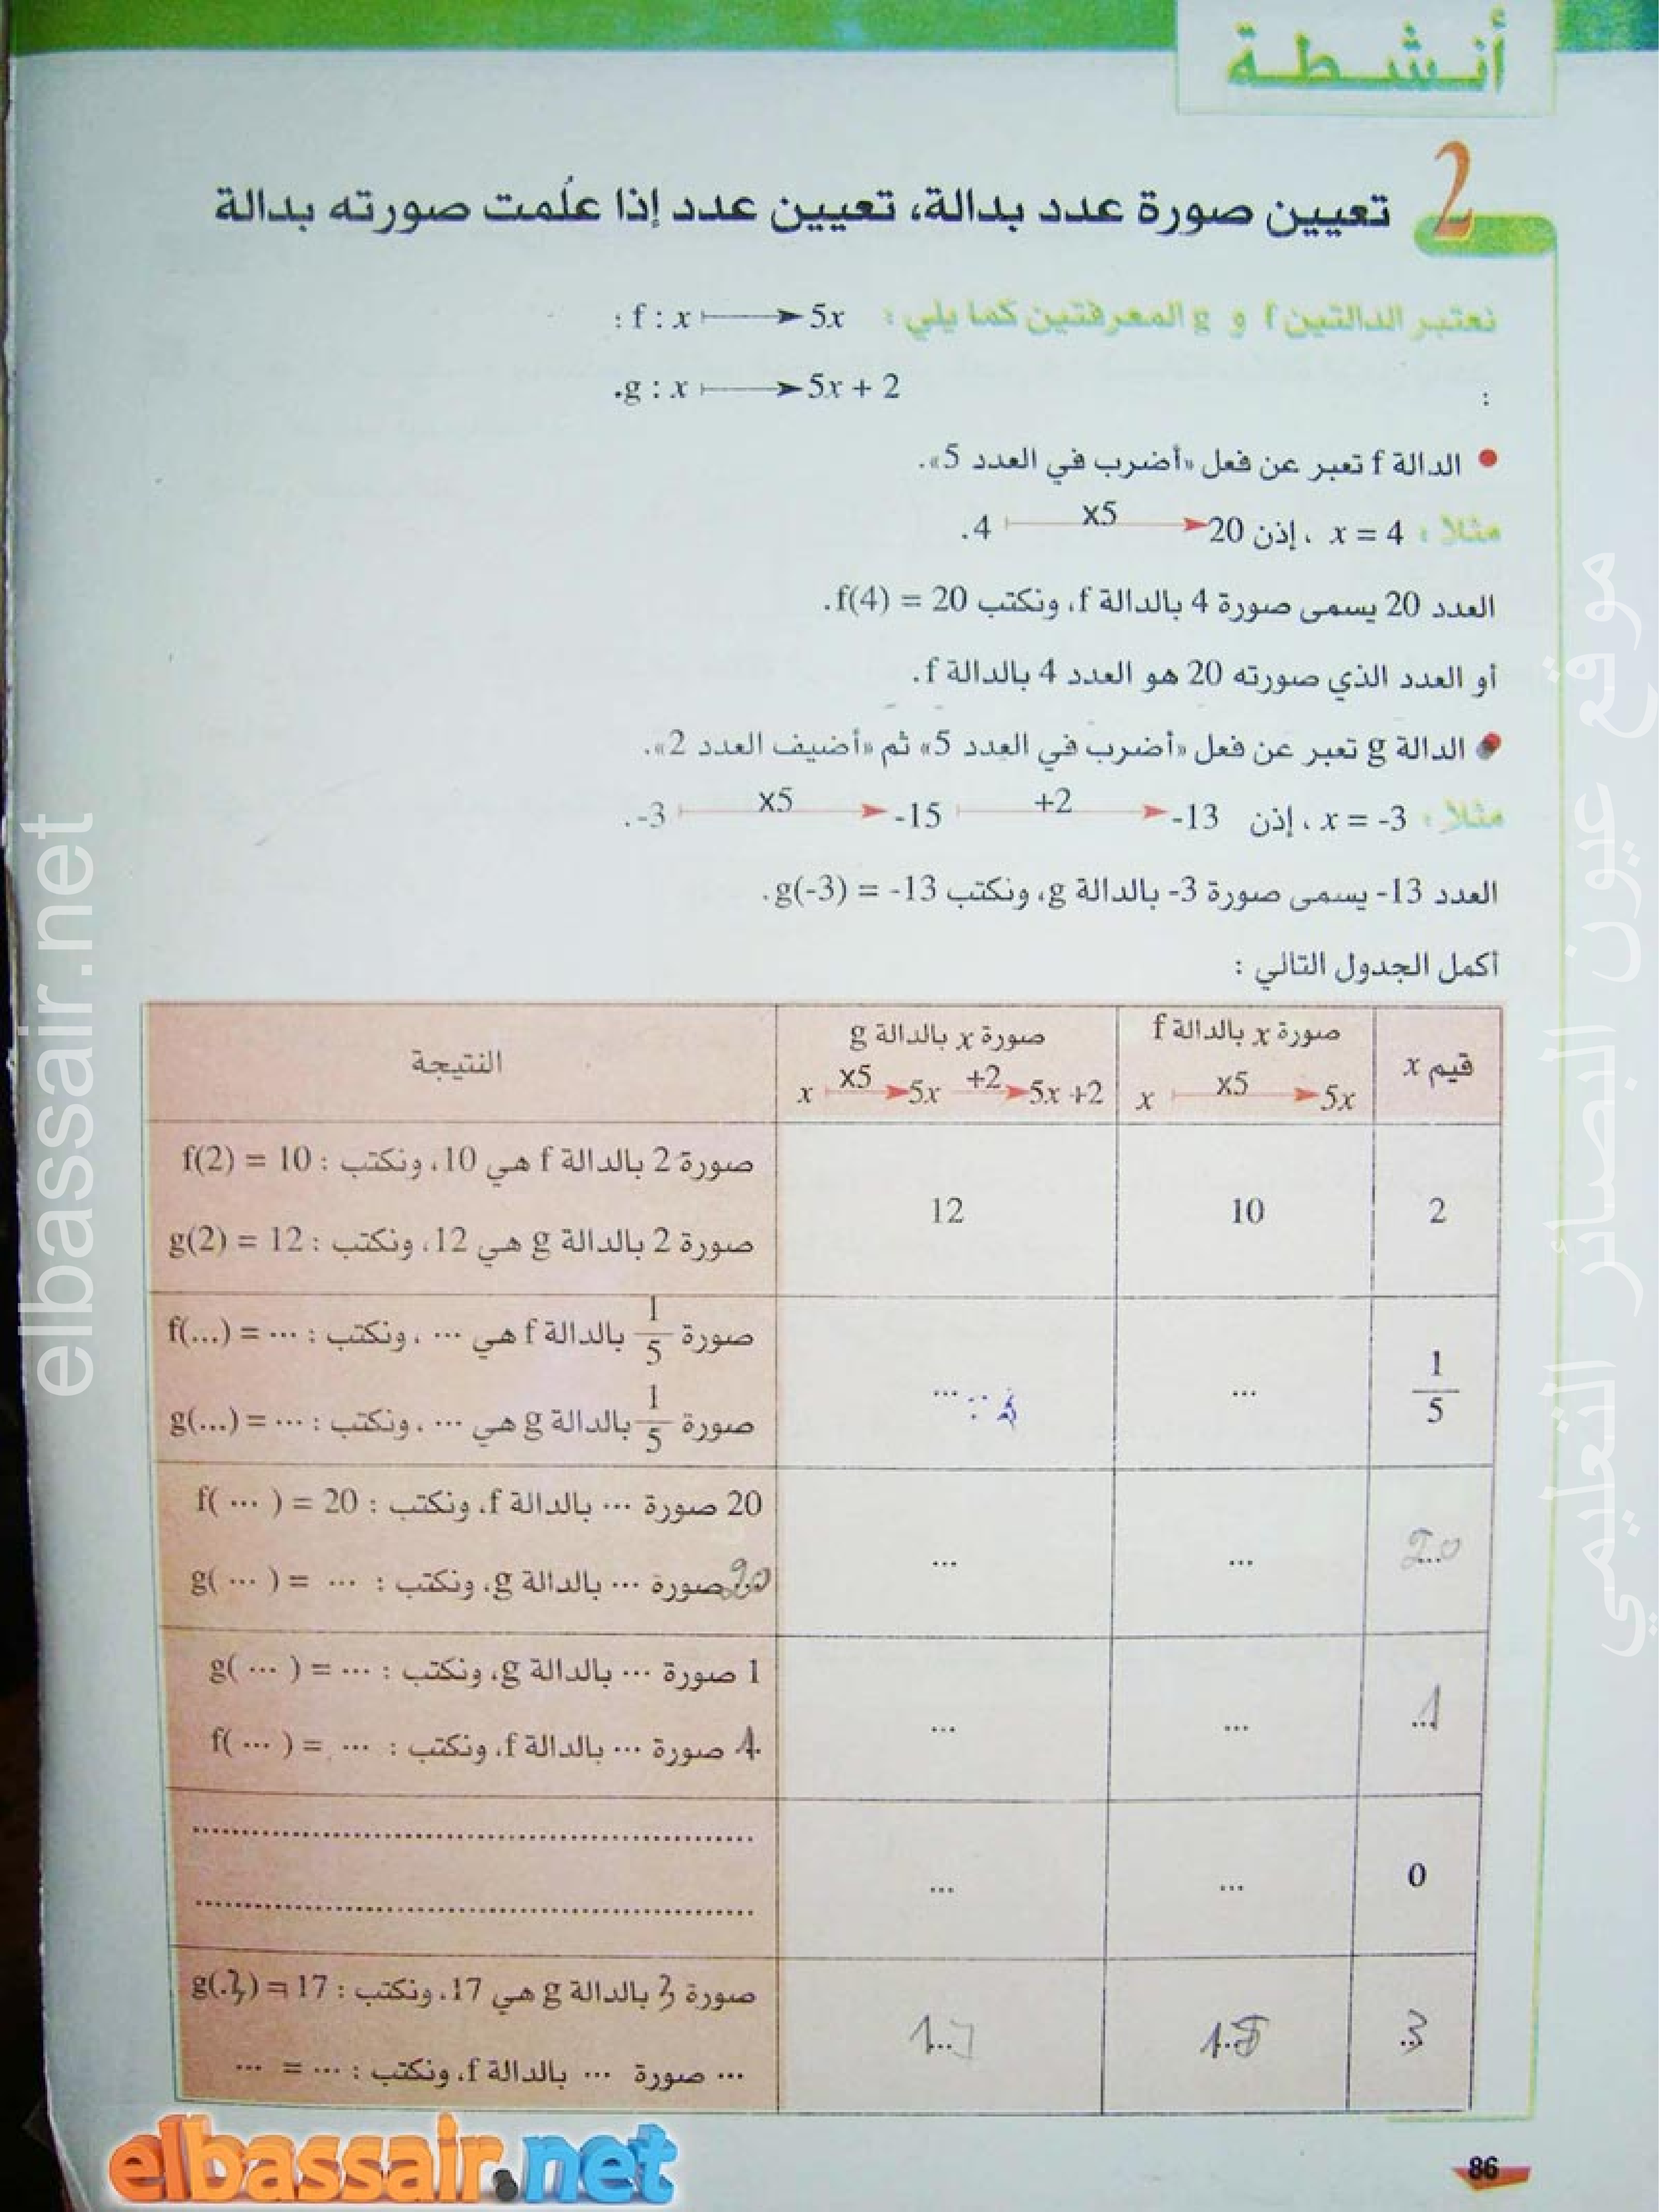 أنشطة
2
تعيين صورة عدد بدالة، تعيين عدد إذا عُلمت صورته بدالة
نعتبر الدالتين f و g المعرفتين كما يلي : f : x ⟼ 5x :
: g : x ⟼ 5x + 2.
• الدالة f تعبر عن فعل «أضرب في العدد 5».
مثلا : x = 4 ، إذن 4 ⟼ x5 20.
العدد 20 يسمى صورة 4 بالدالة f، ونكتب f(4) = 20.
أو العدد الذي صورته 20 هو العدد 4 بالدالة f.
• الدالة g تعبر عن فعل «أضرب في العدد 5» ثم «أضيف العدد 2».
مثلا : x = -3 ، إذن -3 ⟼ x5 -15 ⟼ +2 -13.
العدد 13- يسمى صورة 3- بالدالة g، ونكتب g(-3) = -13.
أكمل الجدول التالي :
قيم x
صورة x بالدالة f
x x5 5x
صورة x بالدالة g
x x5 5x +2 5x +2
النتيجة
2
10
12
صورة 2 بالدالة f هي 10، ونكتب : f(2) = 10
صورة 2 بالدالة g هي 12، ونكتب : g(2) = 12
1/5
...
...
صورة 1/5 بالدالة f هي ... ، ونكتب : f(...) = ...
صورة 1/5 بالدالة g هي ... ، ونكتب : g(...) = ...
20
...
...
20 صورة ... بالدالة f، ونكتب : f( ... ) = 20
20 صورة ... بالدالة g، ونكتب : g( ... ) = ...
1
...
...
1 صورة ... بالدالة g، ونكتب : g( ... ) = ...
1 صورة ... بالدالة f، ونكتب : f( ... ) = ...
0
...
...
3
15
17
صورة 3 بالدالة g هي 17، ونكتب : g(3) = 17
... صورة ... بالدالة f، ونكتب : ... = ...
86
elbassair.net
elbassair.net
موقع عيون البصائر التعليمي